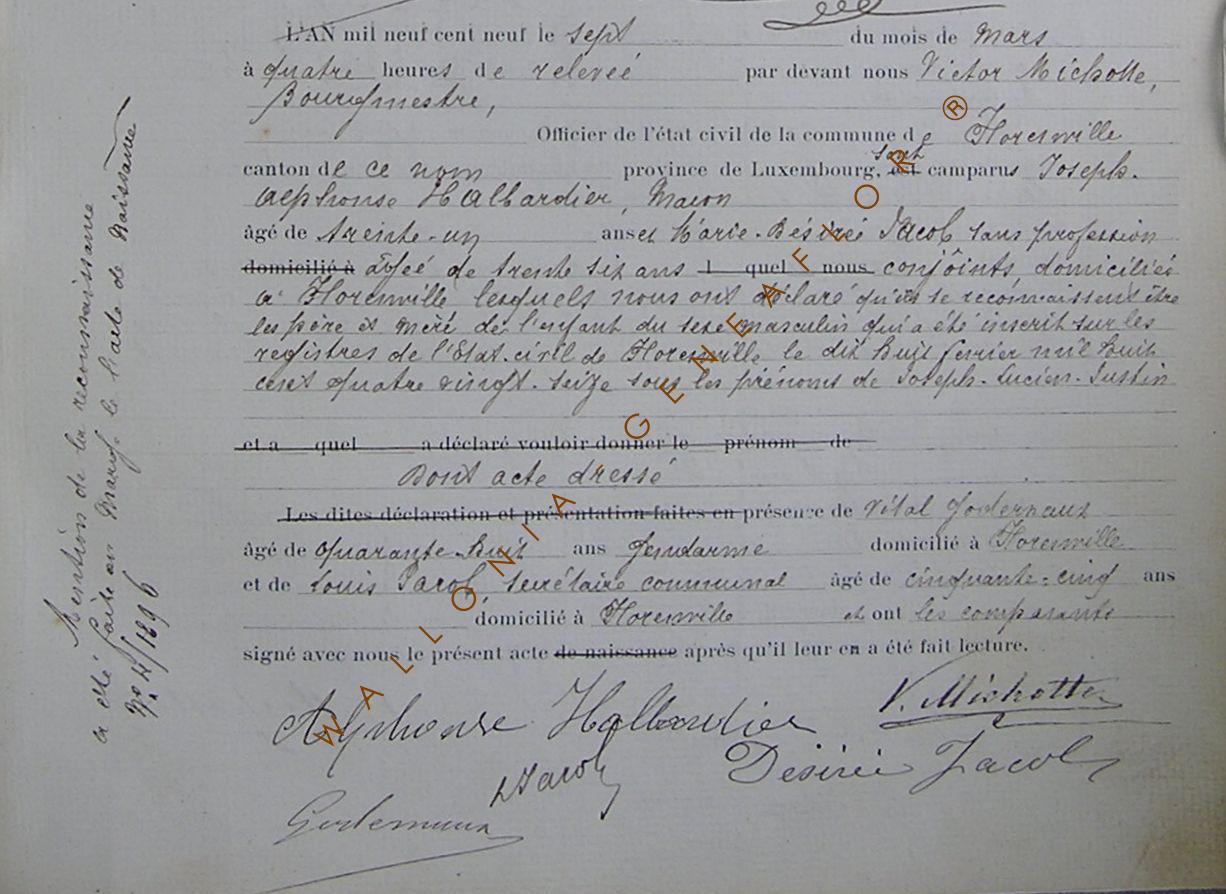 L'AN mil neuf cent neuf le sept du mois de Mars
à quatre heures de relevée par devant nous Victor Michotte,
Bourgmestre,
Officier de l'état civil de la commune de Florenville
canton de ce nom province de Luxembourg, est sont camparus Joseph-
Alphonse Halbardier, Maçon
âgé de trente-un ans et Marie-Désirée Jacob sans profession
domicilié à Agée de trente six ans l quel nous conjoints domiciliés
à Florenville lesquels nous ont déclaré qu'ils se reconnaissent être
les père et mère de l'enfant du sexe masculin qui a été inscrit sur les
registres de l'Etat-civil de Florenville le dix huit février mil huit
cent quatre vingt-seize sous les prénoms de Joseph-Lucien-Justin
et a quel a déclaré vouloir donner le prénom de
Dont acte dressé
Les dites déclaration et présentation faites en présence de Vital Godernaux
âgé de quarante-huit ans Gendarme domicilié à Florenville
et de Louis Jacob, secrétaire communal âgé de cinquante-cinq ans
domicilié à Florenville et ont les comparants
signé avec nous le présent acte de naissance après qu'il leur en a été fait lecture.
Alphonse Halbardier V. Michotte
L Jacob Désirée Jacob
Godernaux
Mention de la reconnaissance
a été faite en marge de l'acte de naissance
No 4/1896
WALLONIA-GENEAFLOR®